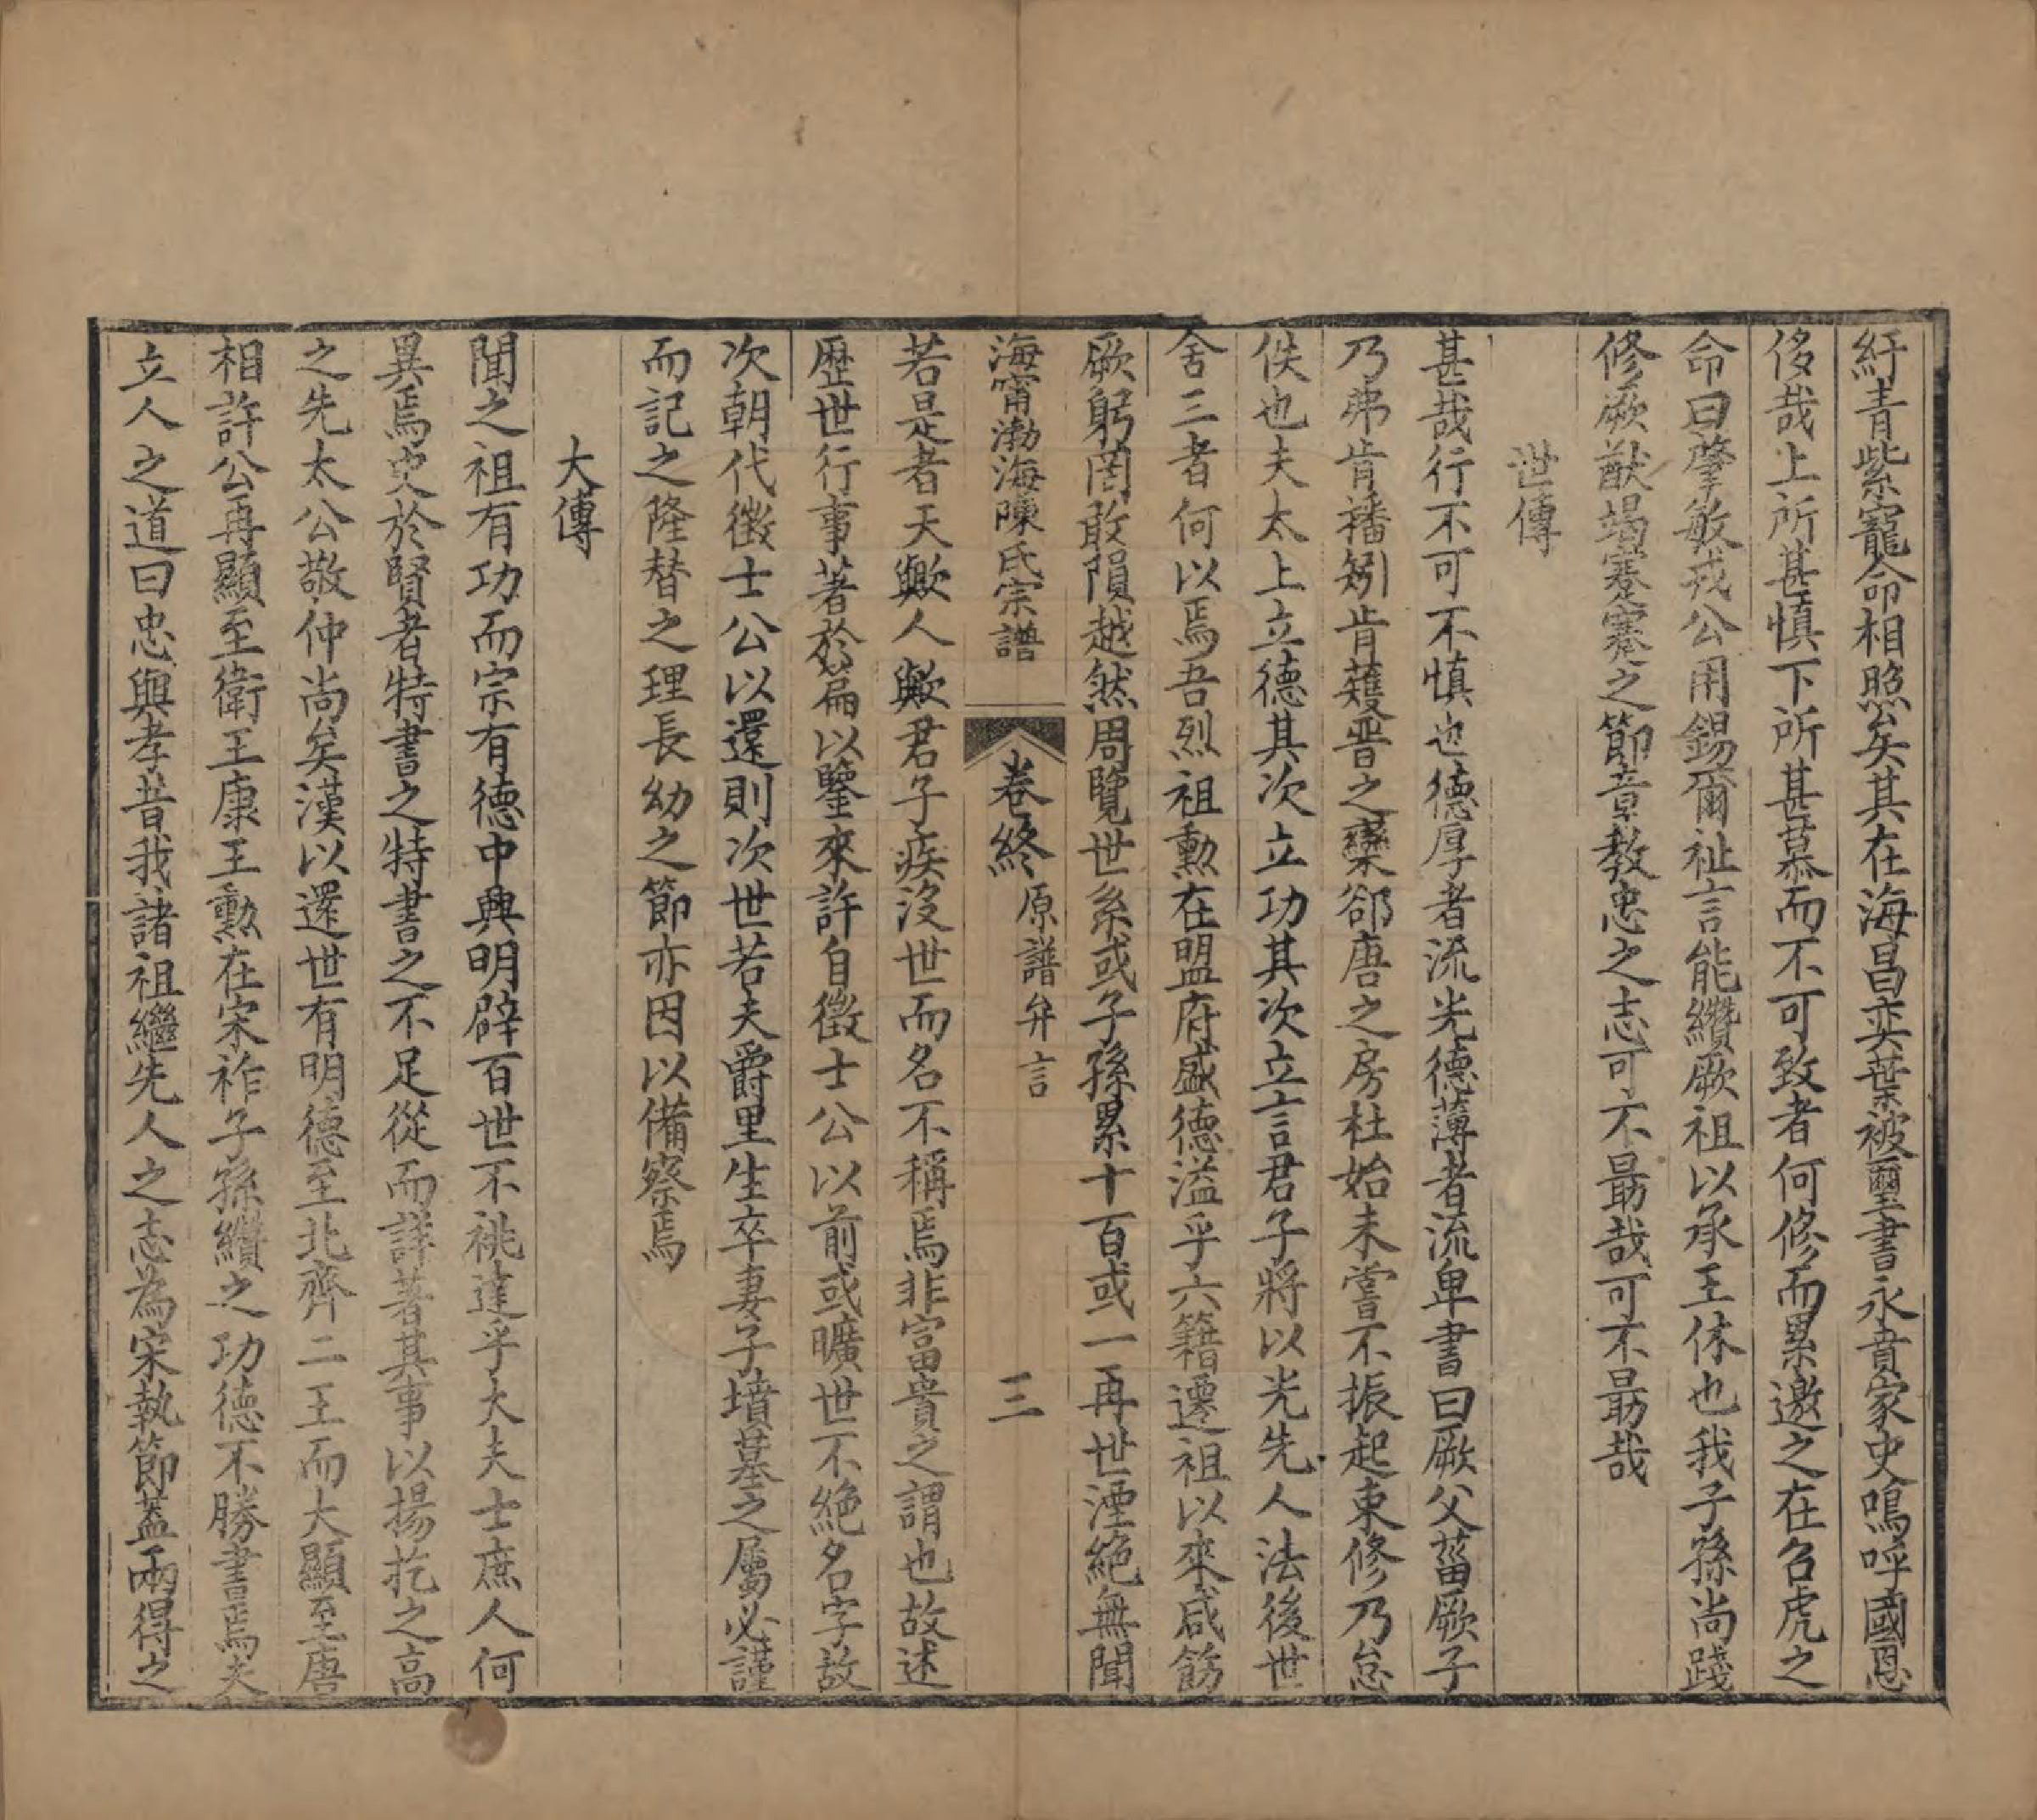 紆青紫寵命相照矣其在海昌奕葉被璽書永賁家史嗚呼國恩
侈哉上所甚慎下所甚慕而不可致者何修而累邀之在召虎之
命曰肇敏戎公用錫爾祉言能纘厥祖以承王休也我子孫尚踐
修厥猷竭蹇蹇之節章教忠之志可不勗哉可不勗哉
世傳
甚哉行不可不慎也德厚者流光德薄者流卑書曰厥父菑厥子
乃弗肯播矧肯穫晉之欒郤唐之房杜始未嘗不振起束修乃怠
佚也夫太上立德其次立功其次立言君子將以光先人法後世
舍三者何以焉吾烈祖勳在盟府盛德溢乎六籍遷祖以來咸飭
厥躬罔敢隕越然周覽世系或子孫累十百或一再世湮絕無聞
海甯渤海陳氏宗譜
卷終 原譜弁言
三
若是者天歟人歟君子疾沒世而名不稱焉非富貴之謂也故述
歷世行事著於篇以鑒來許自徵士公以前或曠世不絕名字故
次朝代徵士公以還則次世若夫爵里生卒妻子墳墓之屬必謹
而記之隆替之理長幼之節亦因以備察焉
大傳
聞之祖有功而宗有德中典明辟百世不祧達乎大夫士庶人何
異焉史於賢者特書之特書之不足從而詳著其事以揚扢之高
之先太公敬仲尚矣漢以還世有明德至北齊二王而大顯至唐
相許公再顯至衛王康王勳在宋祚子孫纘之功德不勝書焉夫
立人之道曰忠與孝昔我諸祖繼先人之志為宋執節蓋兩得之